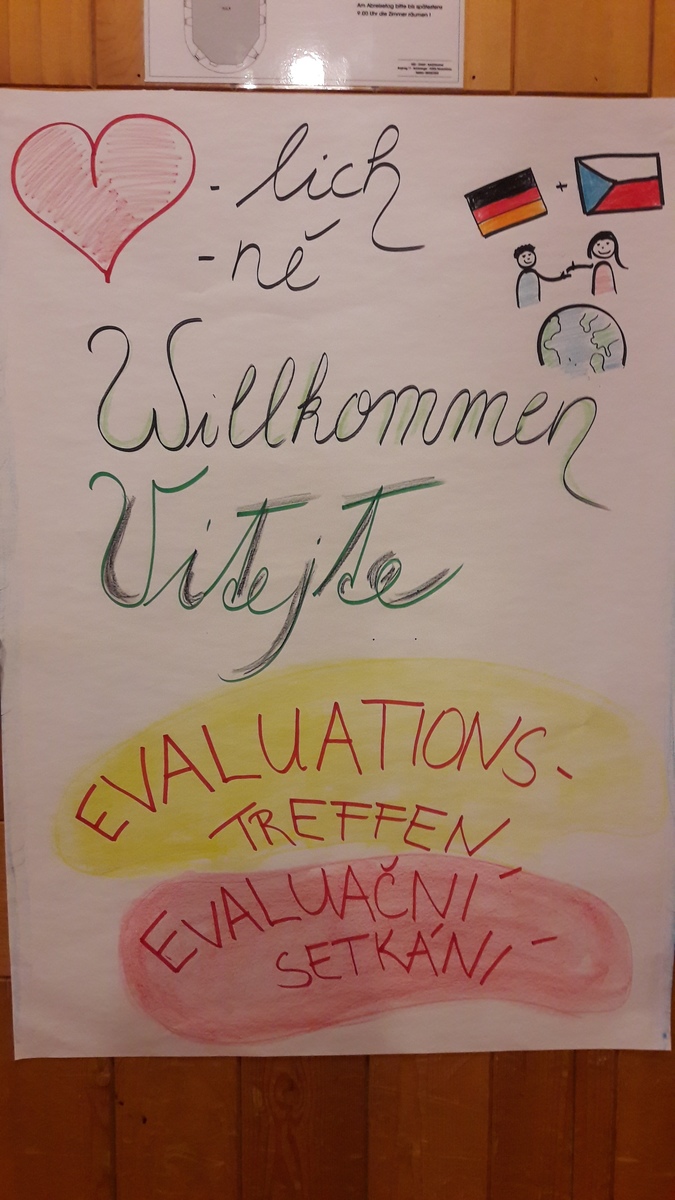 Am Abreisetag bitte bis spätestens
9.00 Uhr die Zimmer räumen !
- lich
- ně
Willkommen
Vítejte
EVALUATIONS-
TREFFEN
EVALUAČNÍ
SETKÁNÍ